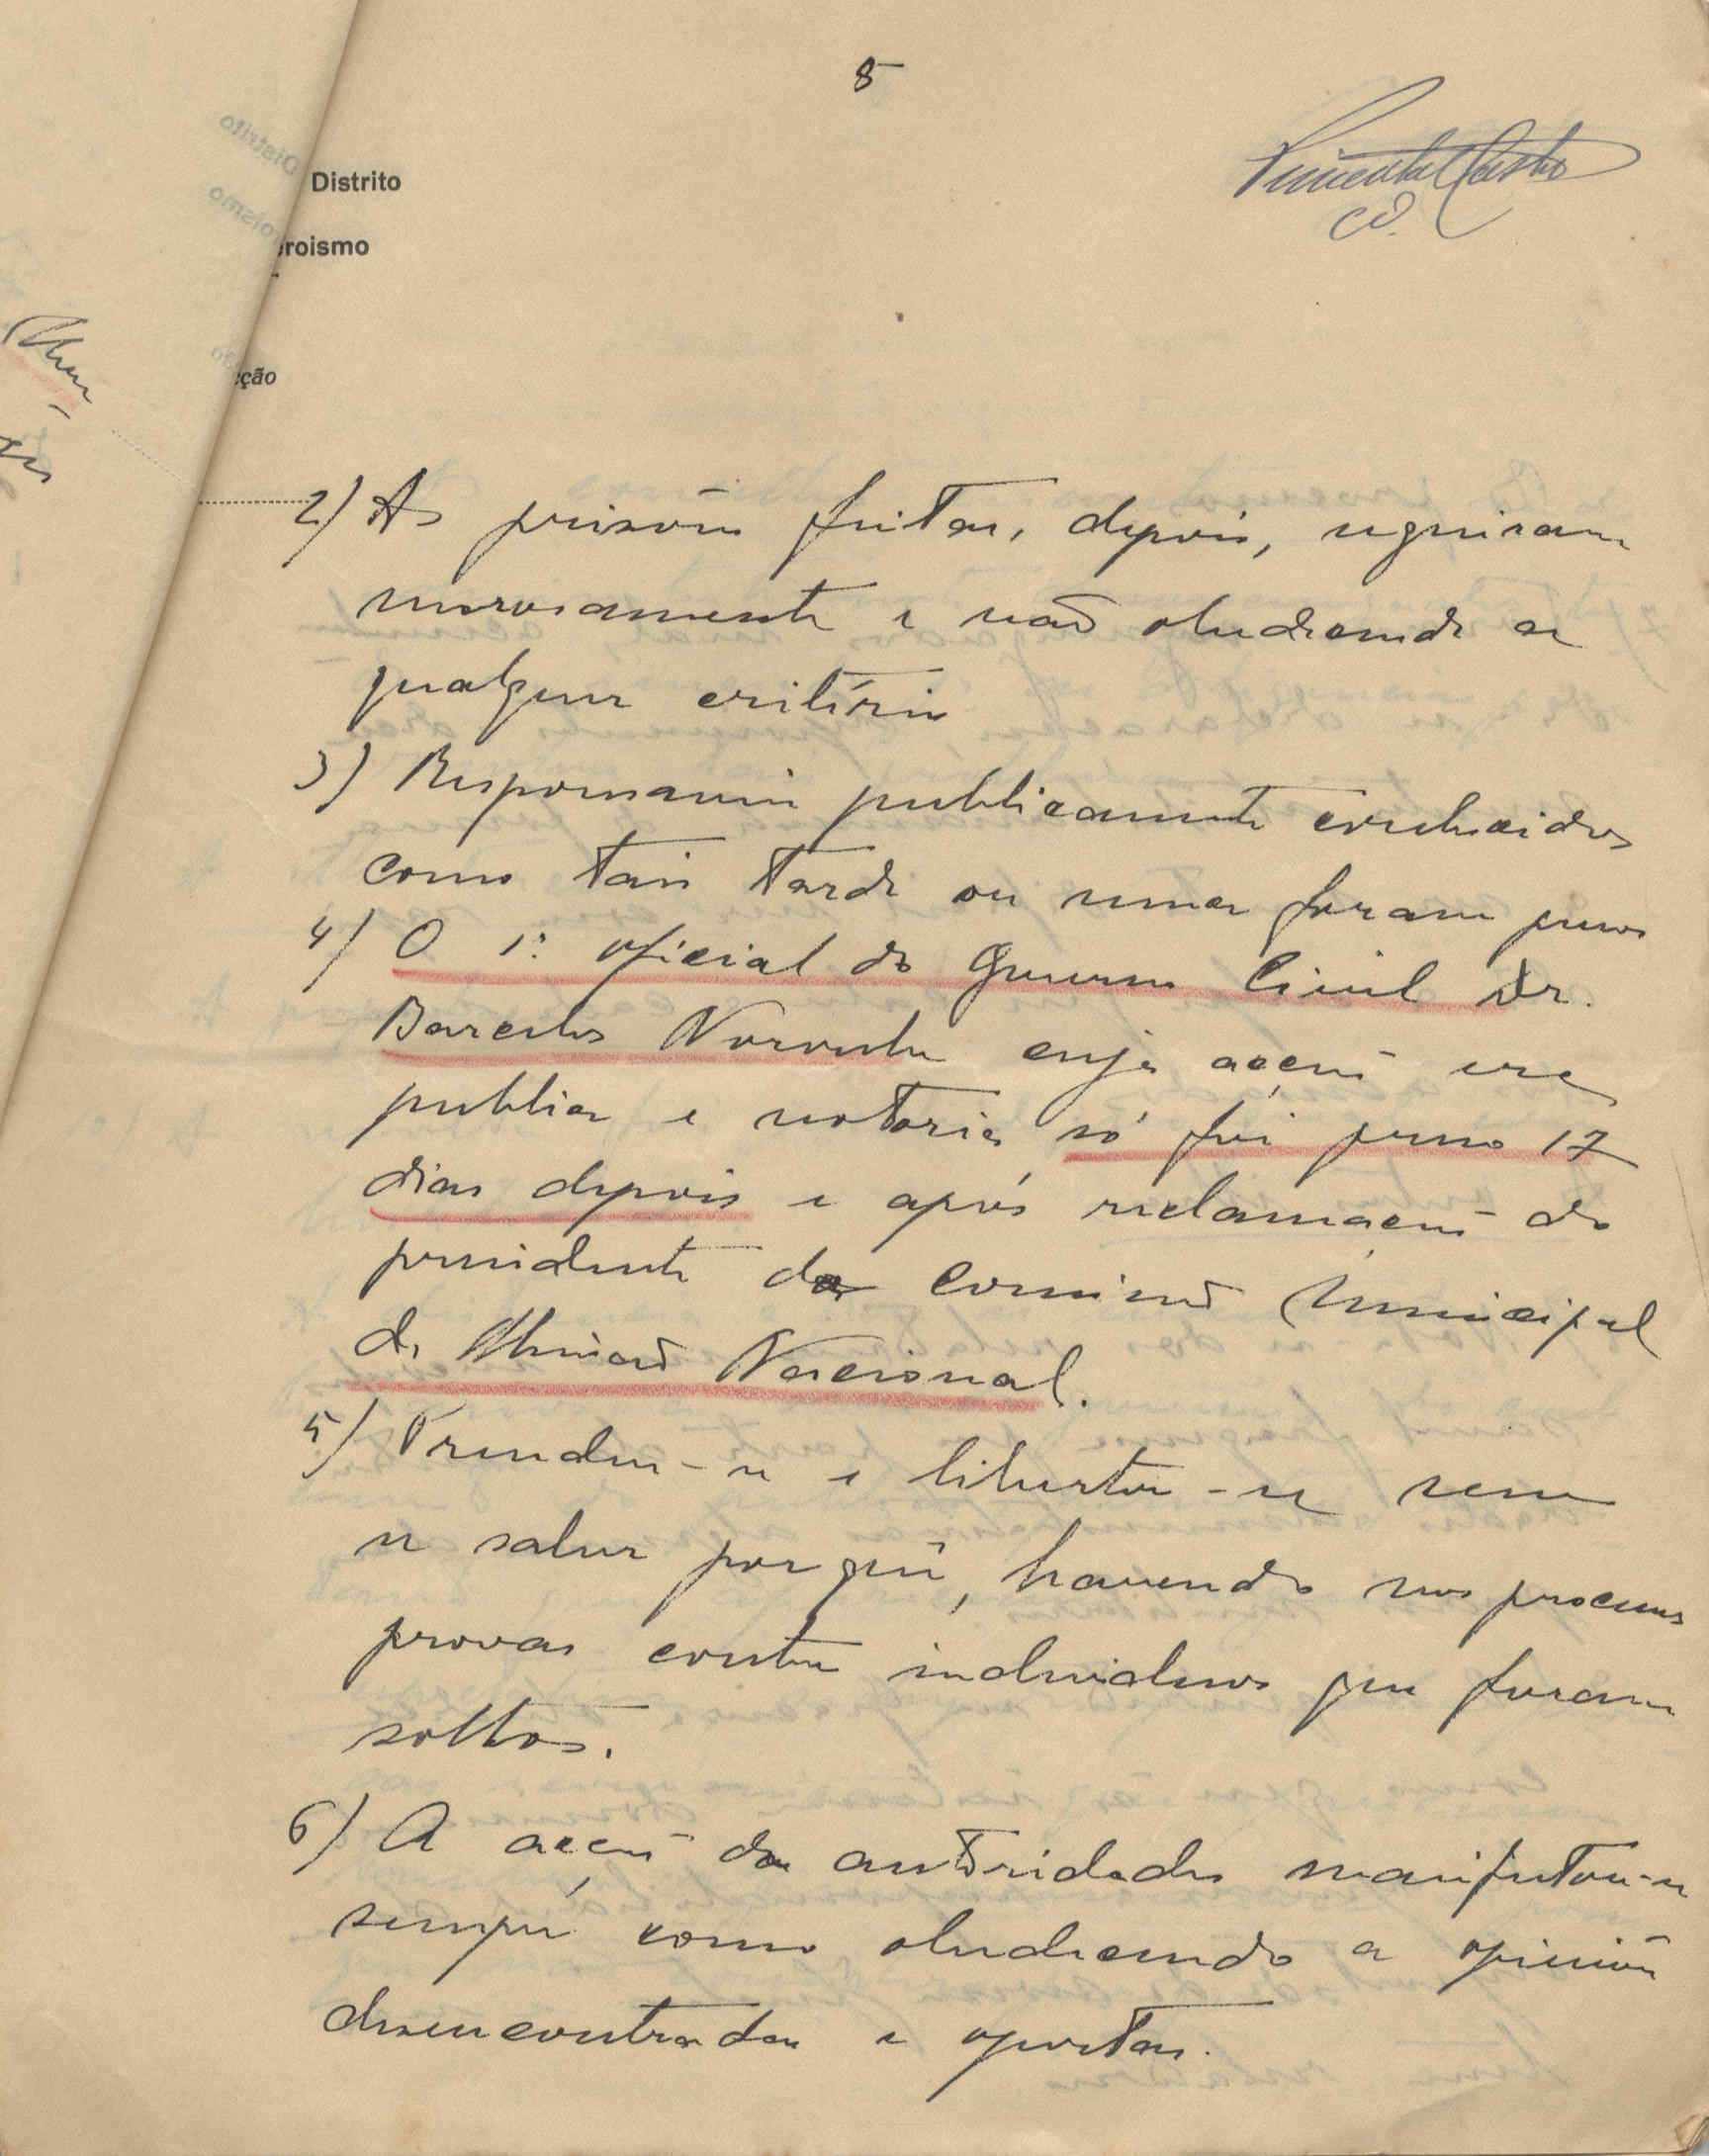 8
Pimenta Castro
Distrito
roismo
cção
2) As prisões feitas, depois, seguiram
morosamente e não obedecendo a
qualquer critério
3) Responsaveis publicamente conhecidos
como tais tarde ou nunca foram presos
4) O 1º oficial do Governo Civil Dr.
Barcelos Noronha cuja acção era
publica e notoria só foi preso 17
dias depois e após reclamação do
presidente da Comissão Municipal
da União Nacional.
5) Prendeu-se e libertou-se sem
se saber porquê, havendo nos processos
provas contra individuos que foram
soltos.
6) A acção das autoridades manifestou-se
sempre como obedecendo a opiniões
desencontradas e opostas.